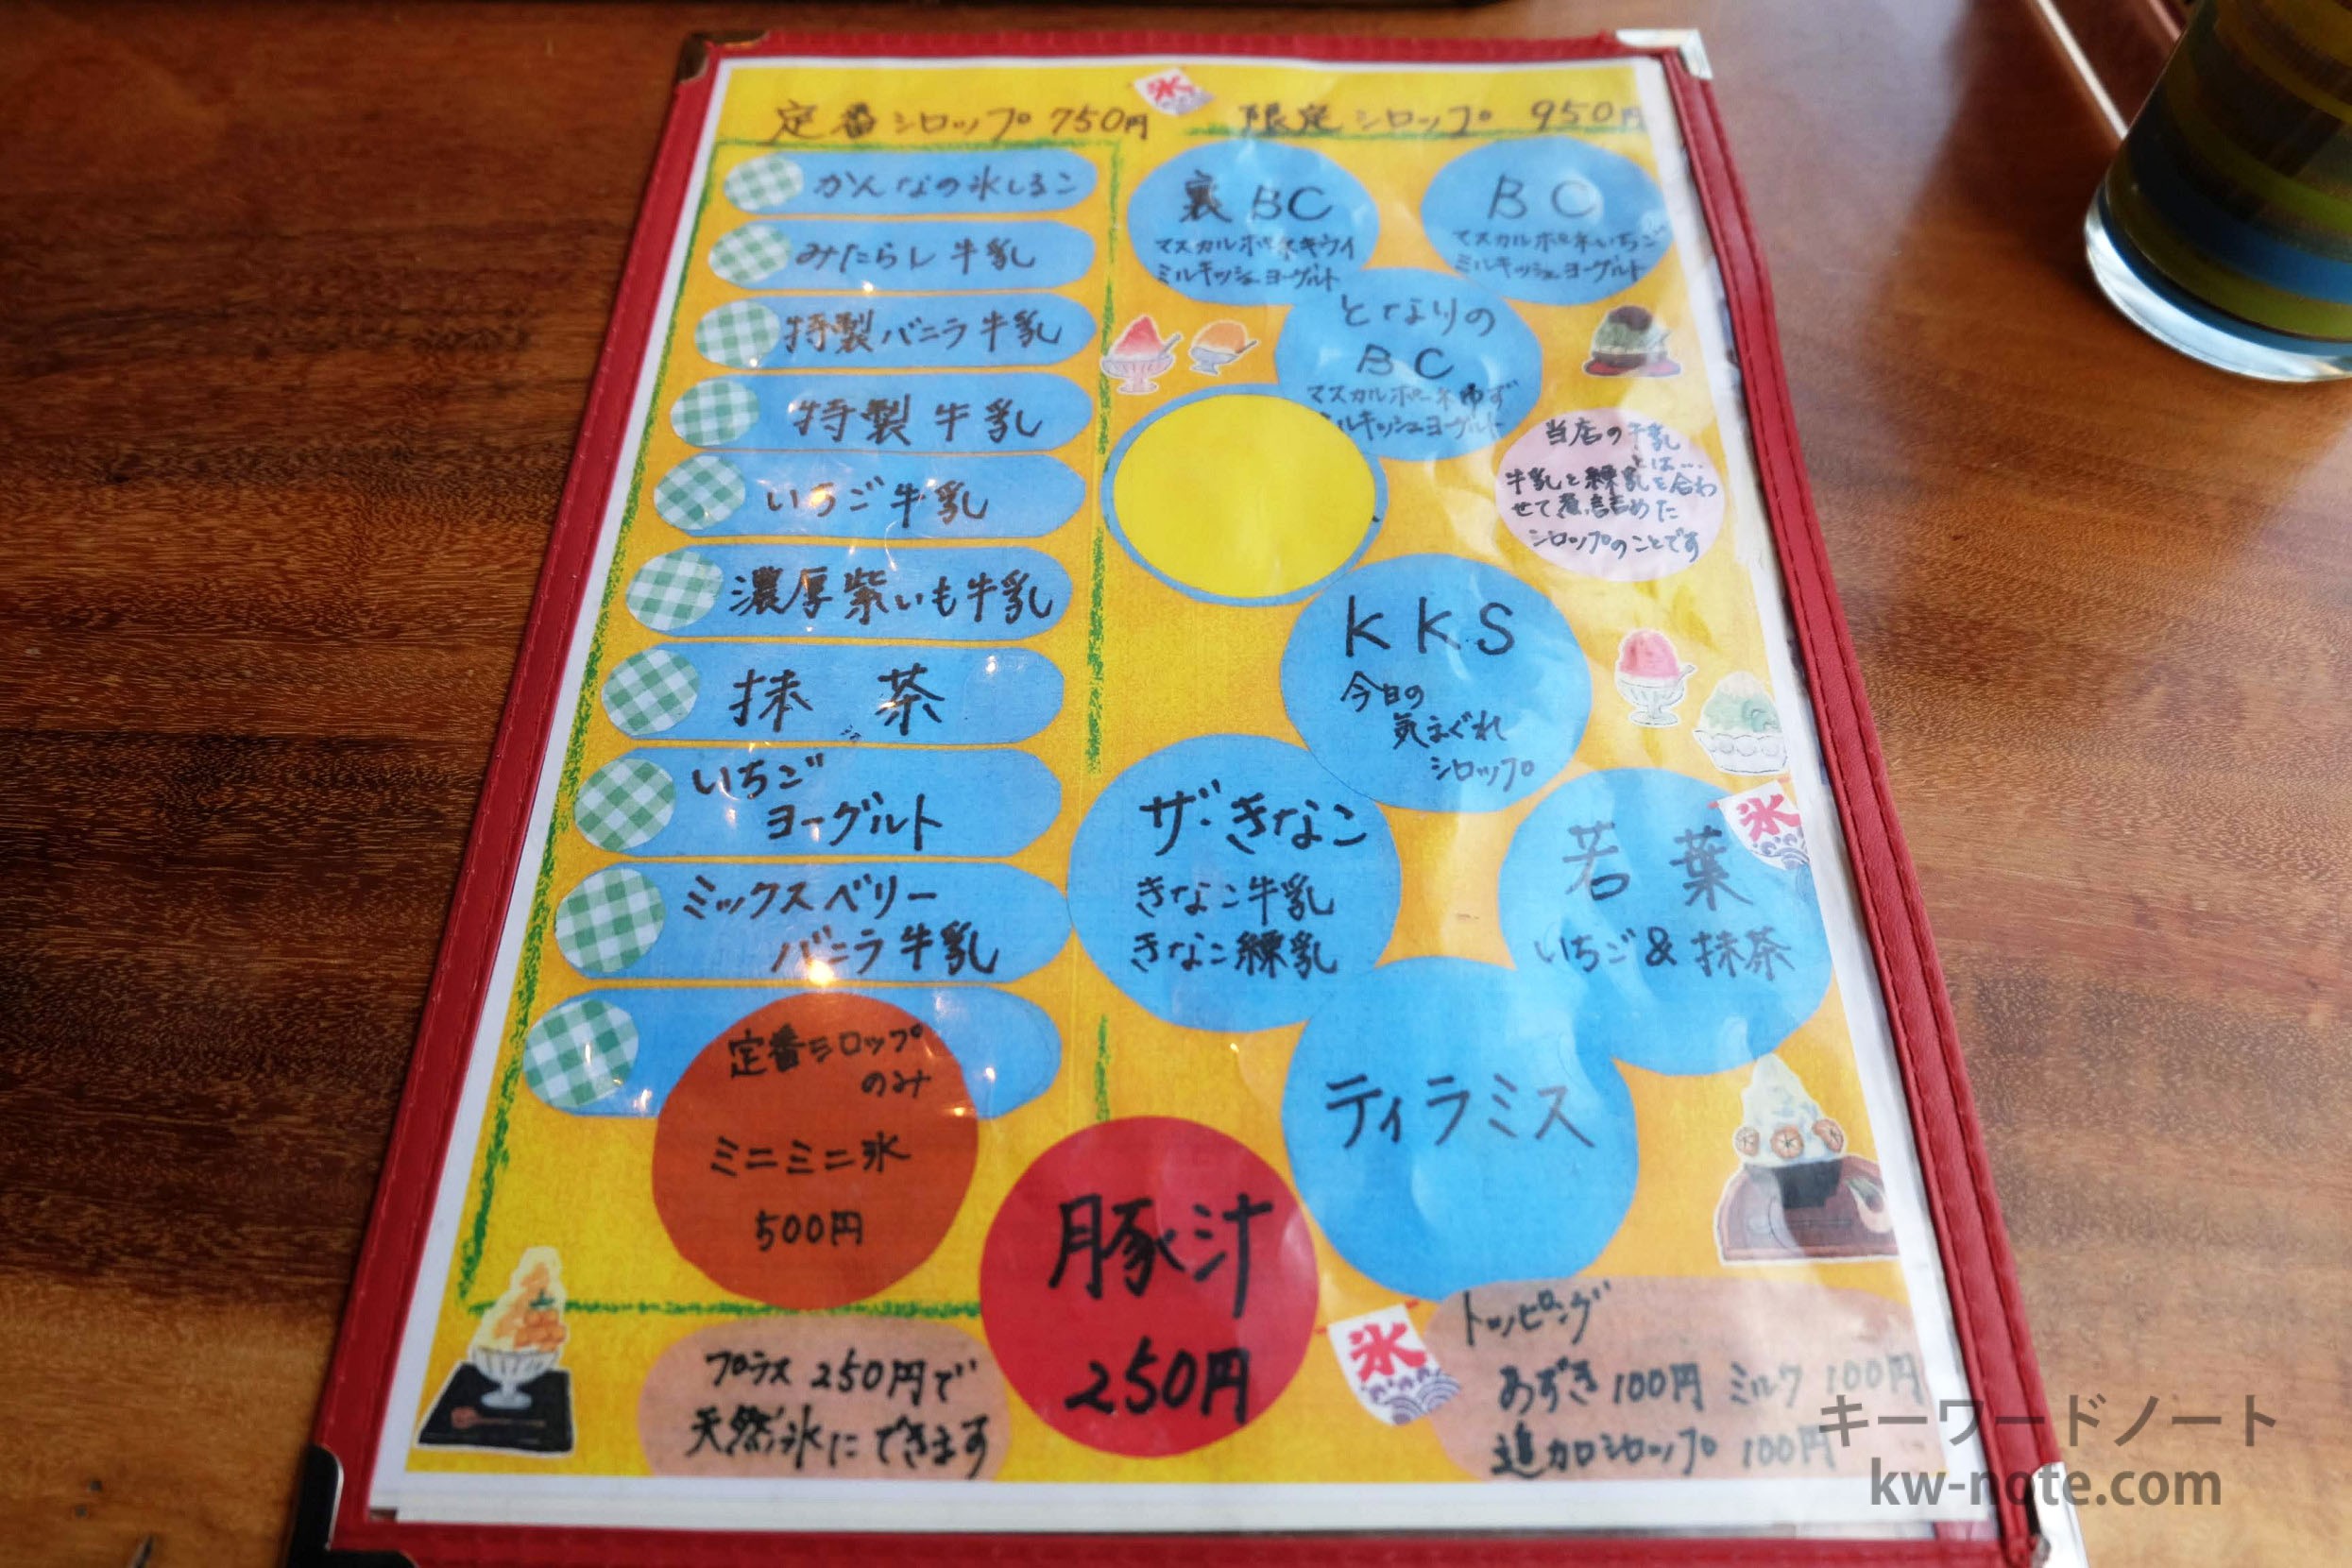 氷
定番シロップ 750円
かんなの氷しるこ
みたらし牛乳
特製バニラ牛乳
特製牛乳
いちご牛乳
濃厚紫いも牛乳
抹茶
いちご
ヨーグルト
ミックスベリー
バニラ牛乳
定番シロップ
のみ
ミニミニ氷
500円
プラス250円で
天然氷にできます
豚汁
250円
限定シロップ 950円
裏BC
マスカルポーネキウイ
ミルキッシュヨーグルト
BC
マスカルポーネいちご
ミルキッシュヨーグルト
となりの
BC
マスカルポーネゆず
ルキッシュヨーグルト
当店の牛乳
とは...
牛乳と練乳を合わ
せて煮詰めた
シロップのことです
KKS
今日の
気まぐれ
シロップ
ザ・きなこ
きなこ牛乳
きなこ練乳
氷
若葉
いちご&抹茶
ティラミス
氷
トッピング
あずき100円 ミルク100円
追加シロップ 100円
キーワードノート
kw-note.com